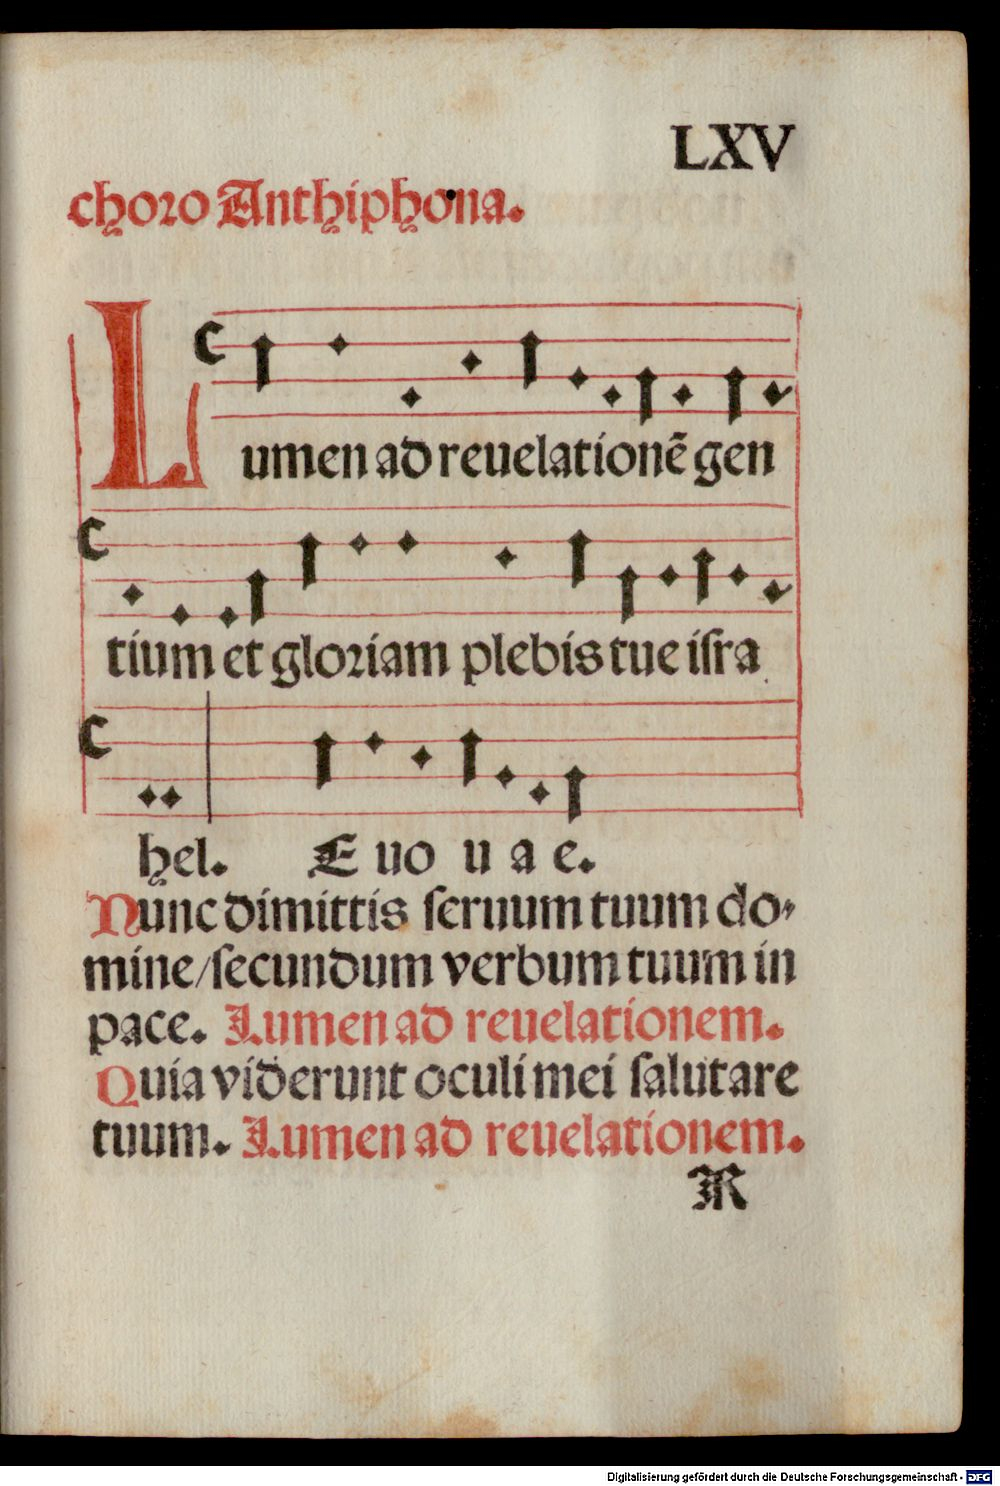 LXV
choro Anthiphona.
Lumen ad reuelationē gen
tium et gloriam plebis tue iſra
hel. E uo u a e.
Nunc dimittis ſeruum tuum do,
mine/ſecundum verbum tuum in
pace. Lumen ad reuelationem.
Quia viderunt oculi mei ſalutare
tuum. Lumen ad reuelationem.
R
Digitalisierung gefördert durch die Deutsche Forschungsgemeinschaft - DFG